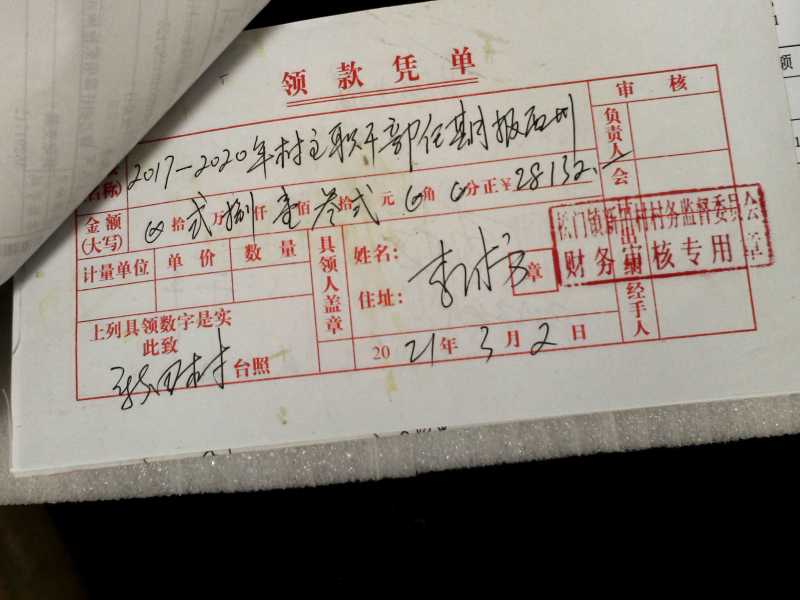 领款凭单
审核
名称)
2017-2020年村主职干部任期报
负责人
金额
(大写)
0拾弍万捌仟壹佰叁拾弍元0角0分正¥28132.
会
计量单位 单价 数量
具领人盖章
姓名:
住址:
李
章
松门镇新村村务监督委员会
财务审核专用章
经手人
上列具领数字是实
此致
村台照
2021年3月2日
额